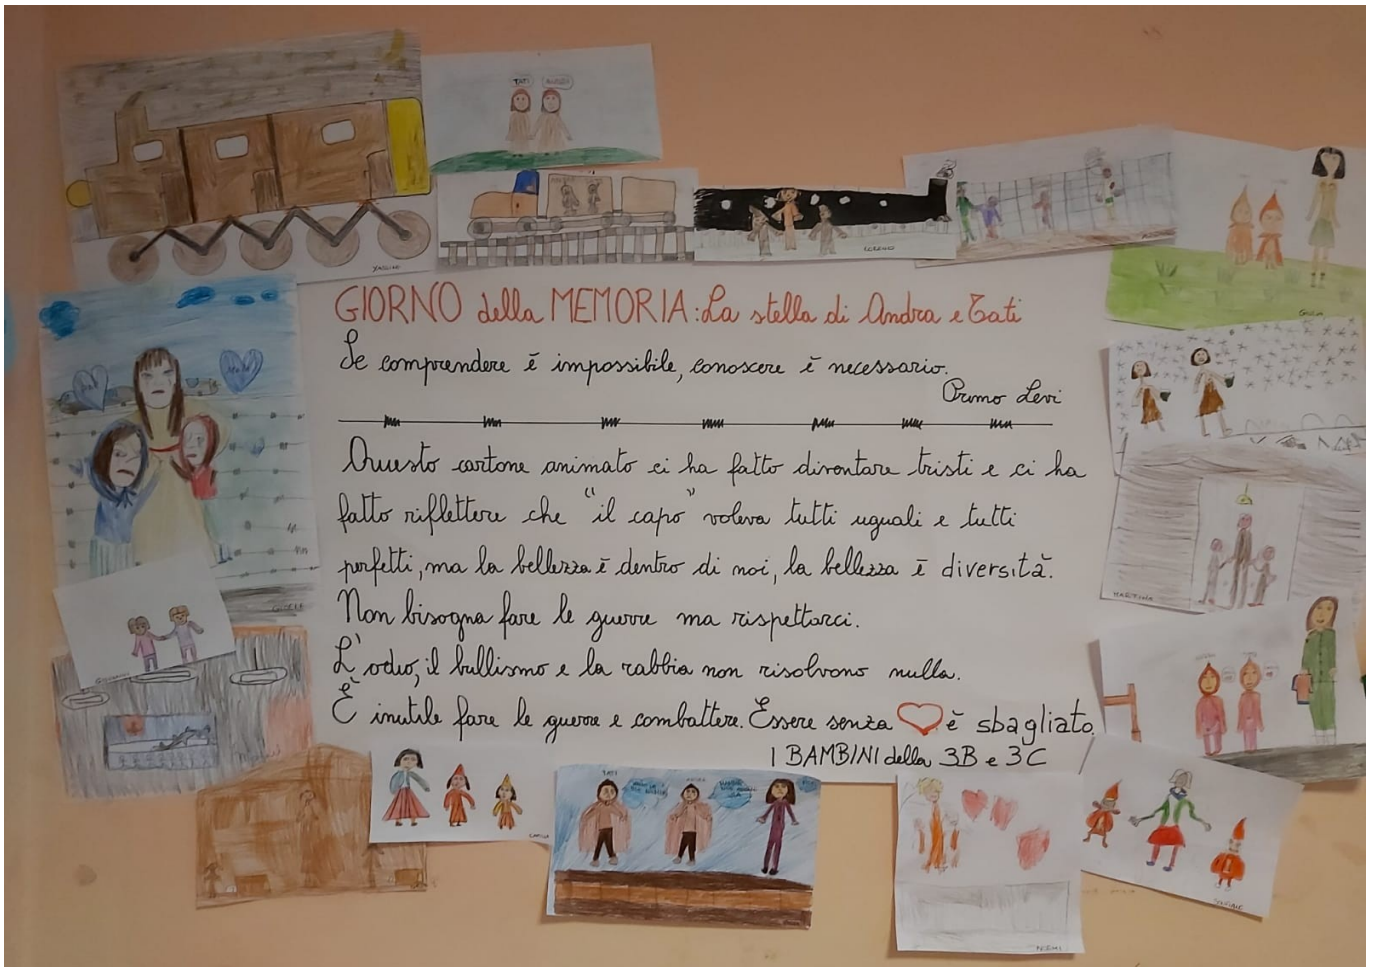 TATI
YASSINE
GIORNO della MEMORIA: La stella di Andra e Tati
Se comprendere è impossibile, conoscere è necessario.
Primo Levi
Questo cartone animato ci ha fatto diventare tristi e ci ha
fatto riflettere che "il capo" voleva tutti uguali e tutti
perfetti, ma la bellezza è dentro di noi, la bellezza è diversità.
Non bisogna fare le guerre ma rispettarci.
L'odio, il bullismo e la rabbia non risolvono nulla.
È inutile fare le guerre e combattere. Essere senza è sbagliato.
I BAMBINI della 3B e 3C
TATI